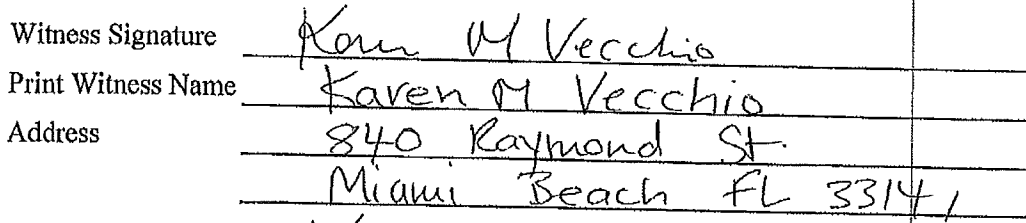 Witness Signature Karen M Vecchio
Print Witness Name Karen M Vecchio
Address 840 Raymond St.
Miami Beach FL 33141